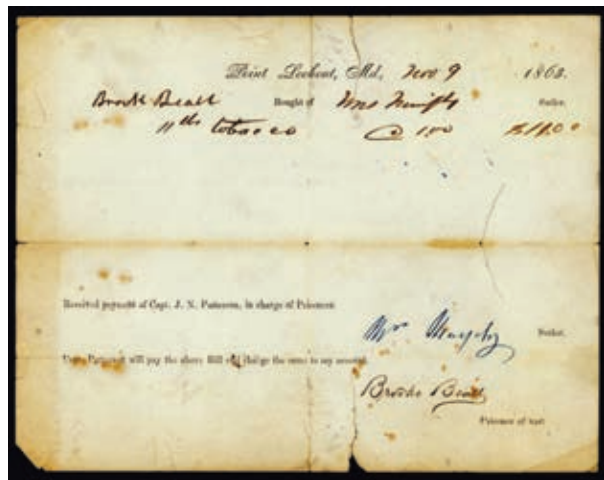 Point Lookout, Md, Nov 9 1863.
Brook Beall Bought of Wm Murphy Sutler.
11 lbs tobacco @ 1.00 $11.00
Received payment of Capt. J. N. Patterson, in charge of Prisoners
Wm Murphy Sutler.
Capt. Patterson will pay the above Bill and charge the same to my account.
Brooke Beall
Prisoner of war